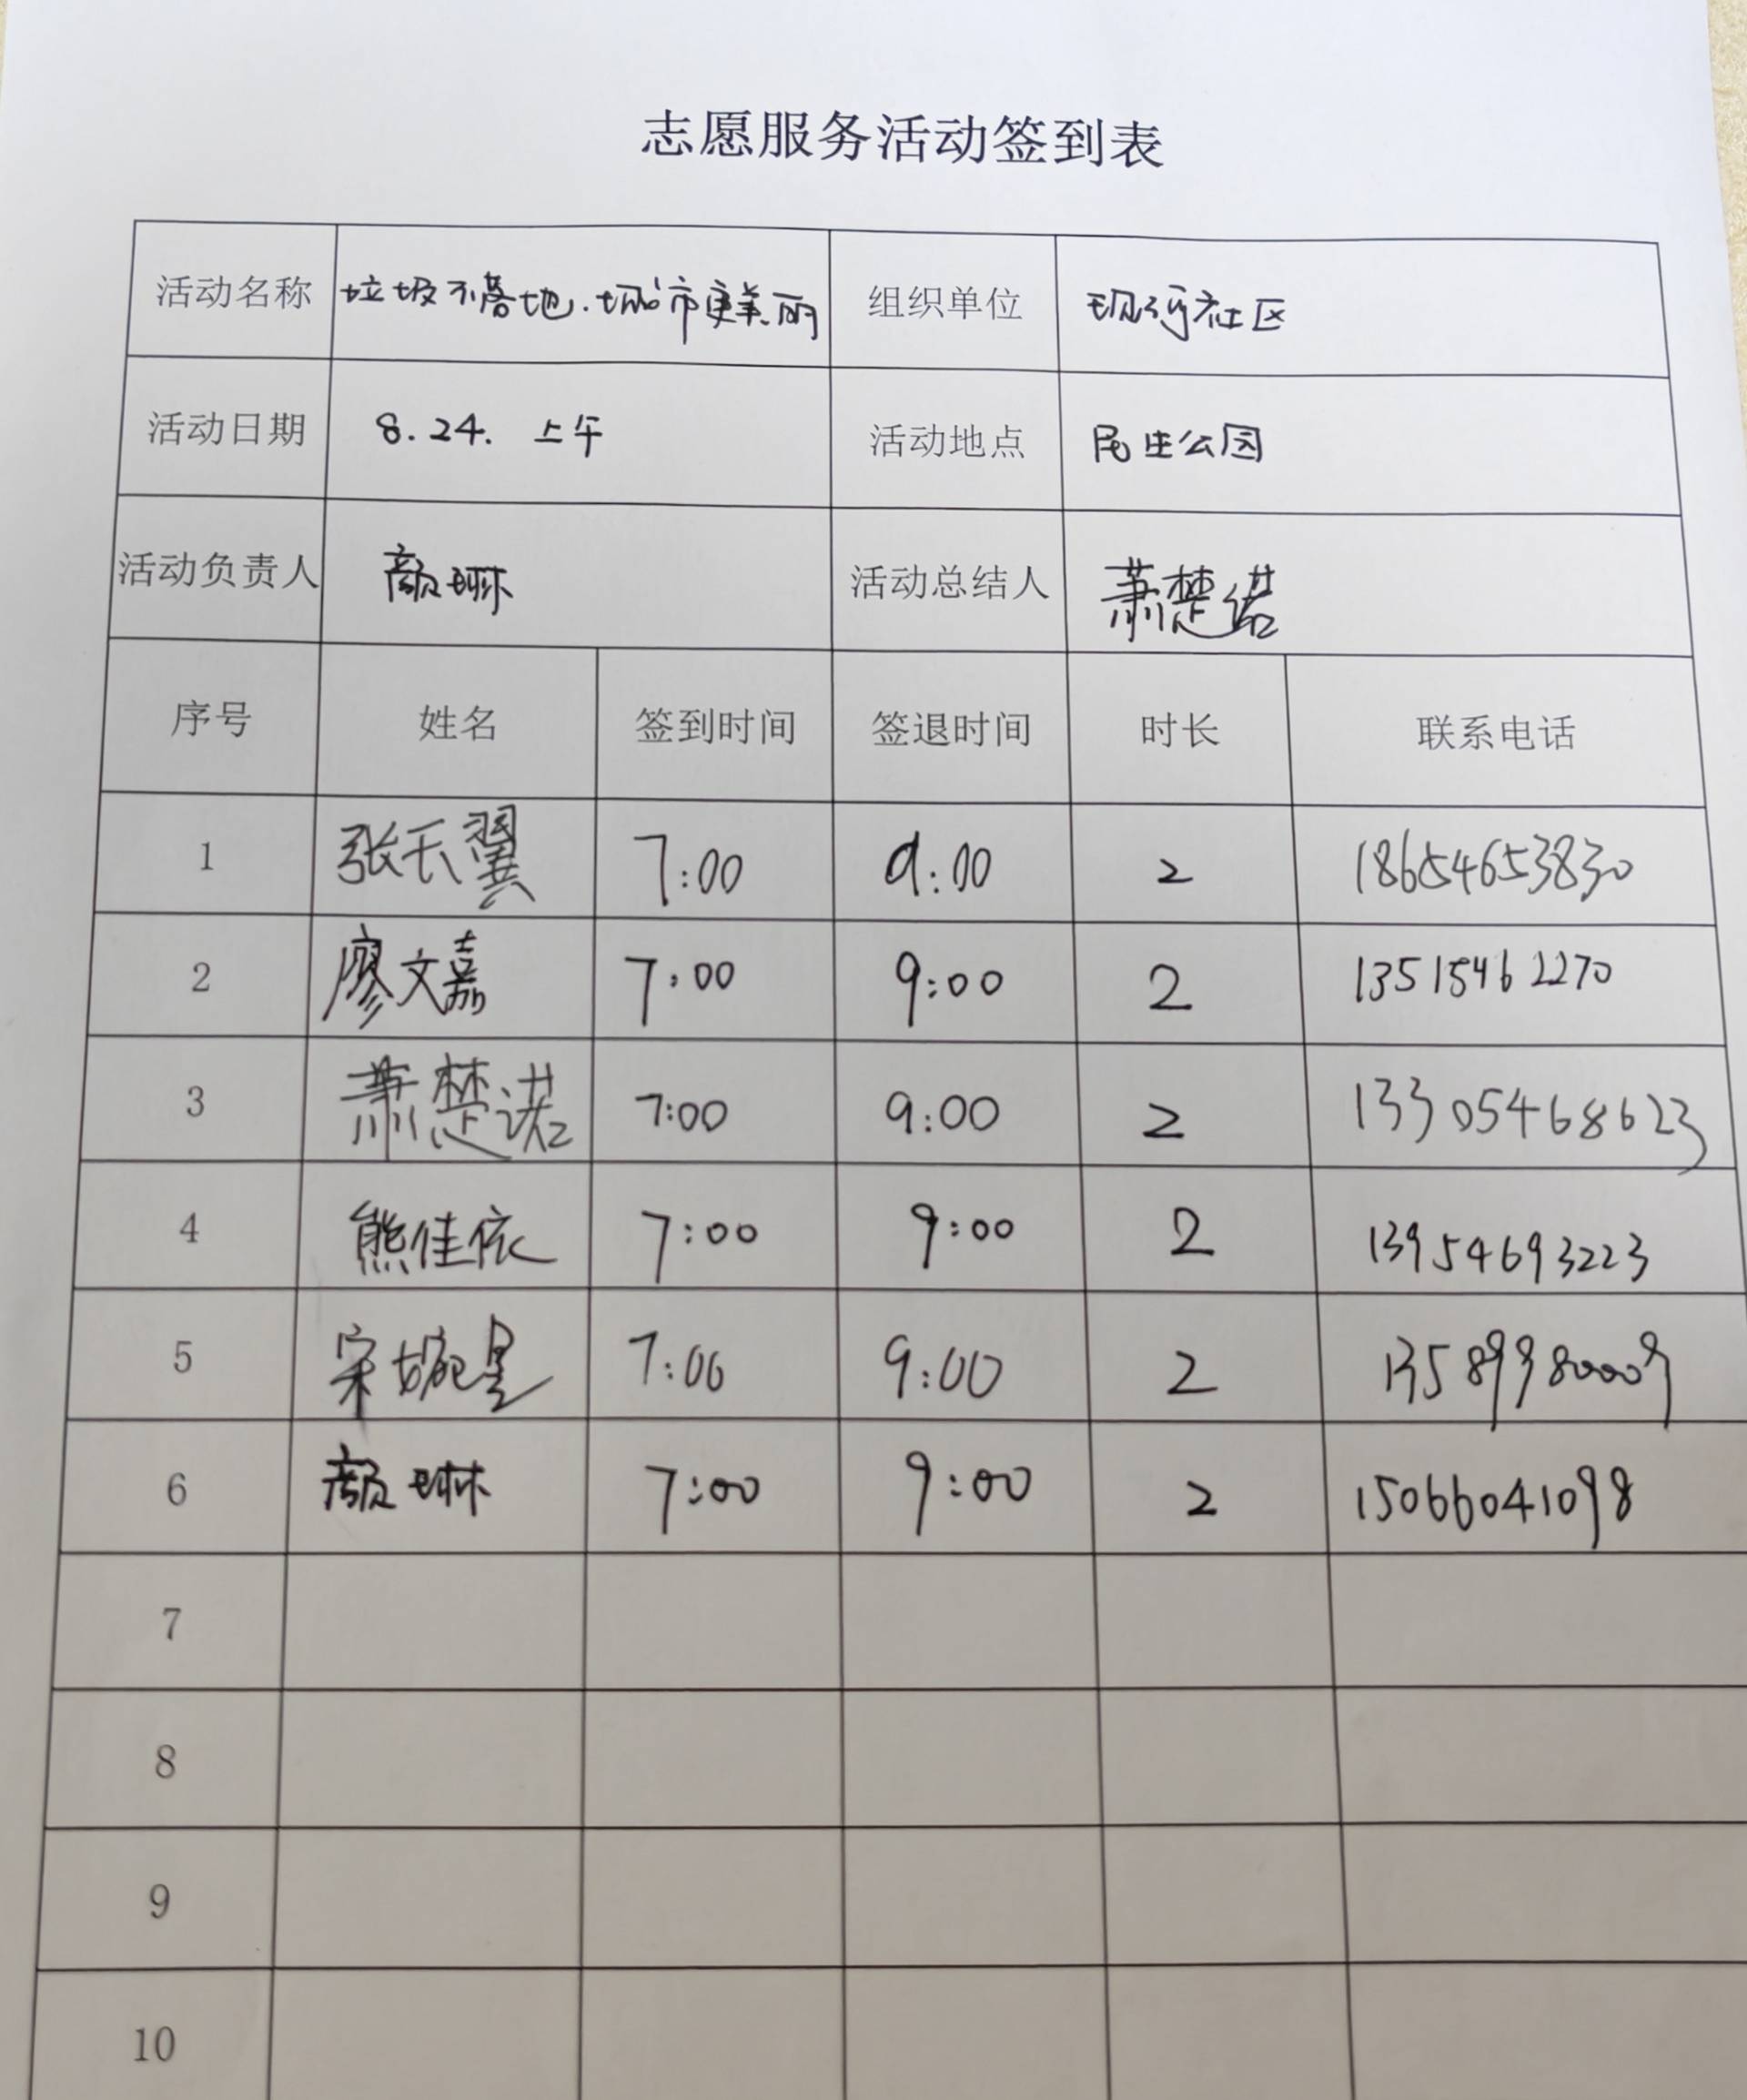 志愿服务活动签到表
活动名称 垃圾不落地.城市更美丽 组织单位 现河社区
活动日期 8.24. 上午 活动地点 民生公园
活动负责人 颜琳 活动总结人 萧楚诺
序号 姓名 签到时间 签退时间 时长 联系电话
1 张天翼 7:00 9:00 2 18654653830
2 廖文嘉 7:00 9:00 2 13515462270
3 萧楚诺 7:00 9:00 2 13305468623
4 熊佳依 7:00 9:00 2 13954693223
5 宋婉星 7:00 9:00 2 13589980009
6 颜琳 7:00 9:00 2 15066041098
7
8
9
10